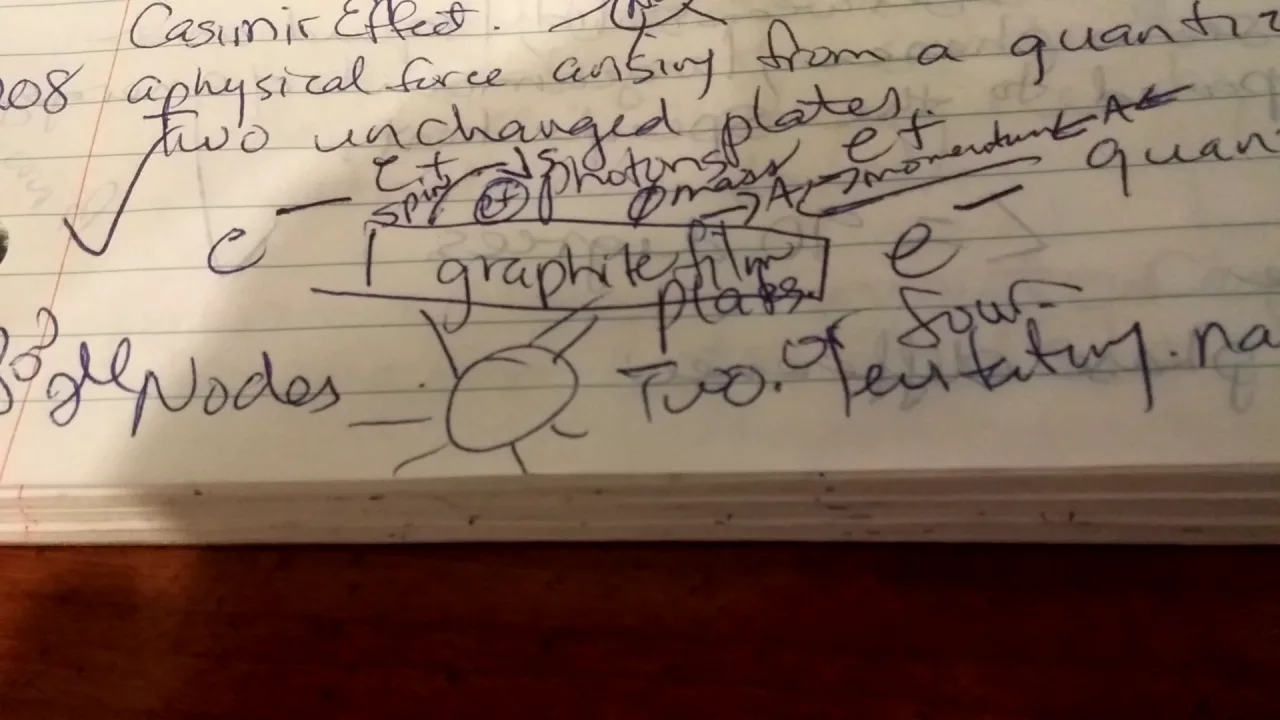 Casimir Effect.
208 a physical force arising from a quanti
Two unchanged plates.
et photons et A
spin et mass A momentum quan
e e
graphite film
plates.
four
Nodes Two. Of na